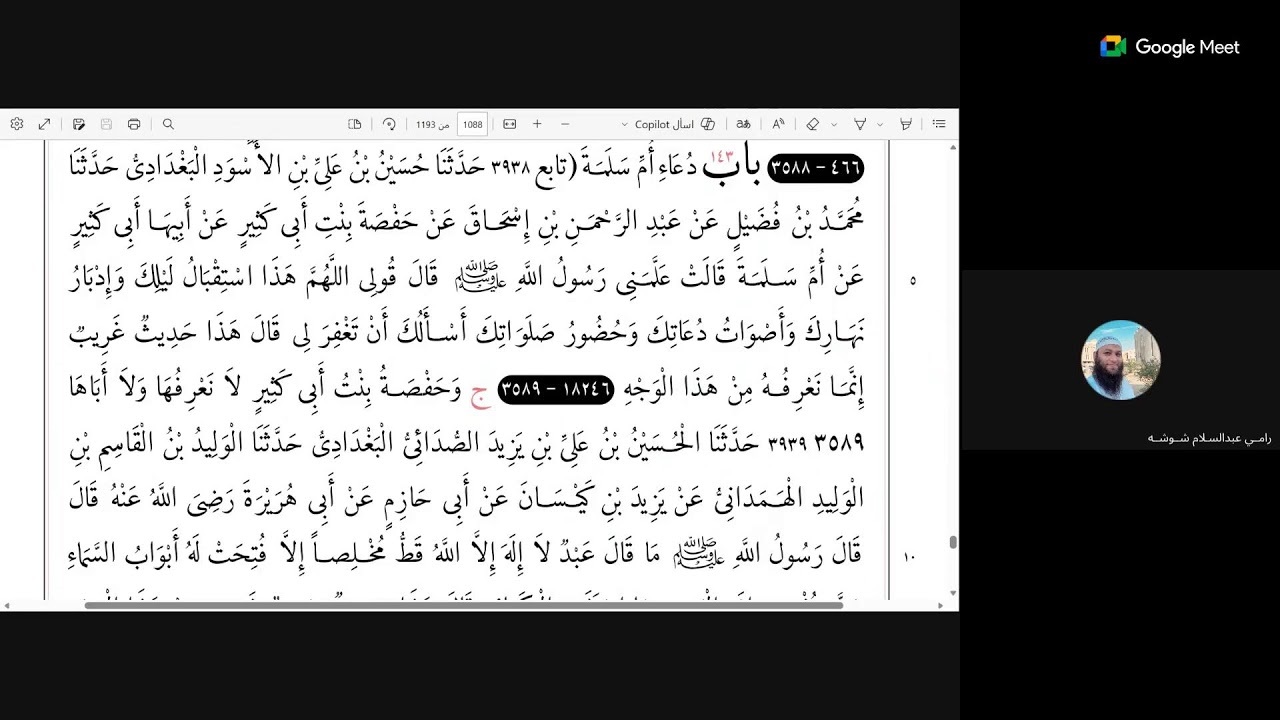 Google Meet
1088
من 1193
اسأل Copilot
٤٦٦ - ٣٥٨٨ باب ١٤٣ دُعَاءِ أُمِّ سَلَمَةَ (تابع ٣٩٣٨ حَدَّثَنَا حُسَيْنُ بْنُ عَلِيِّ بْنِ الأَسْوَدِ الْبَغْدَادِىُّ حَدَّثَنَا
مُحَمَّدُ بْنُ فُضَيْلٍ عَنْ عَبْدِ الرَّحْمَنِ بْنِ إِسْحَاقَ عَنْ حَفْصَةَ بِنْتِ أَبِى كَثِيرٍ عَنْ أَبِيهَا أَبِى كَثِيرٍ
عَنْ أُمِّ سَلَمَةَ قَالَتْ عَلَّمَنِى رَسُولُ اللَّهِ ﷺ قَالَ قُولِى اللَّهُمَّ هَذَا اسْتِقْبَالُ لَيْلِكَ وَإِدْبَارُ
٥
نَهَارِكَ وَأَصْوَاتُ دُعَاتِكَ وَحُضُورُ صَلَوَاتِكَ أَسْأَلُكَ أَنْ تَغْفِرَ لِى قَالَ هَذَا حَدِيثٌ غَرِيبٌ
إِنَّمَا نَعْرِفُهُ مِنْ هَذَا الْوَجْهِ ١٨٢٤٦ - ٣٥٨٩ ج وَحَفْصَةُ بِنْتُ أَبِى كَثِيرٍ لاَ نَعْرِفُهَا وَلاَ أَبَاهَا
٣٥٨٩ ٣٩٣٩ حَدَّثَنَا الْحُسَيْنُ بْنُ عَلِىِّ بْنِ يَزِيدَ الصُّدَائِىُّ الْبَغْدَادِىُّ حَدَّثَنَا الْوَلِيدُ بْنُ الْقَاسِمِ بْنِ
الْوَلِيدِ الْهَمَدَانِىُّ عَنْ يَزِيدَ بْنِ كَيْسَانَ عَنْ أَبِى حَازِمٍ عَنْ أَبِى هُرَيْرَةَ رَضِىَ اللَّهُ عَنْهُ قَالَ
قَالَ رَسُولُ اللَّهِ ﷺ مَا قَالَ عَبْدٌ لاَ إِلَهَ إِلاَّ اللَّهُ قَطُّ مُخْلِصاً إِلاَّ فُتِحَتْ لَهُ أَبْوَابُ السَّمَاءِ
١٠
رامـي عبدالسـلام شـوشـه